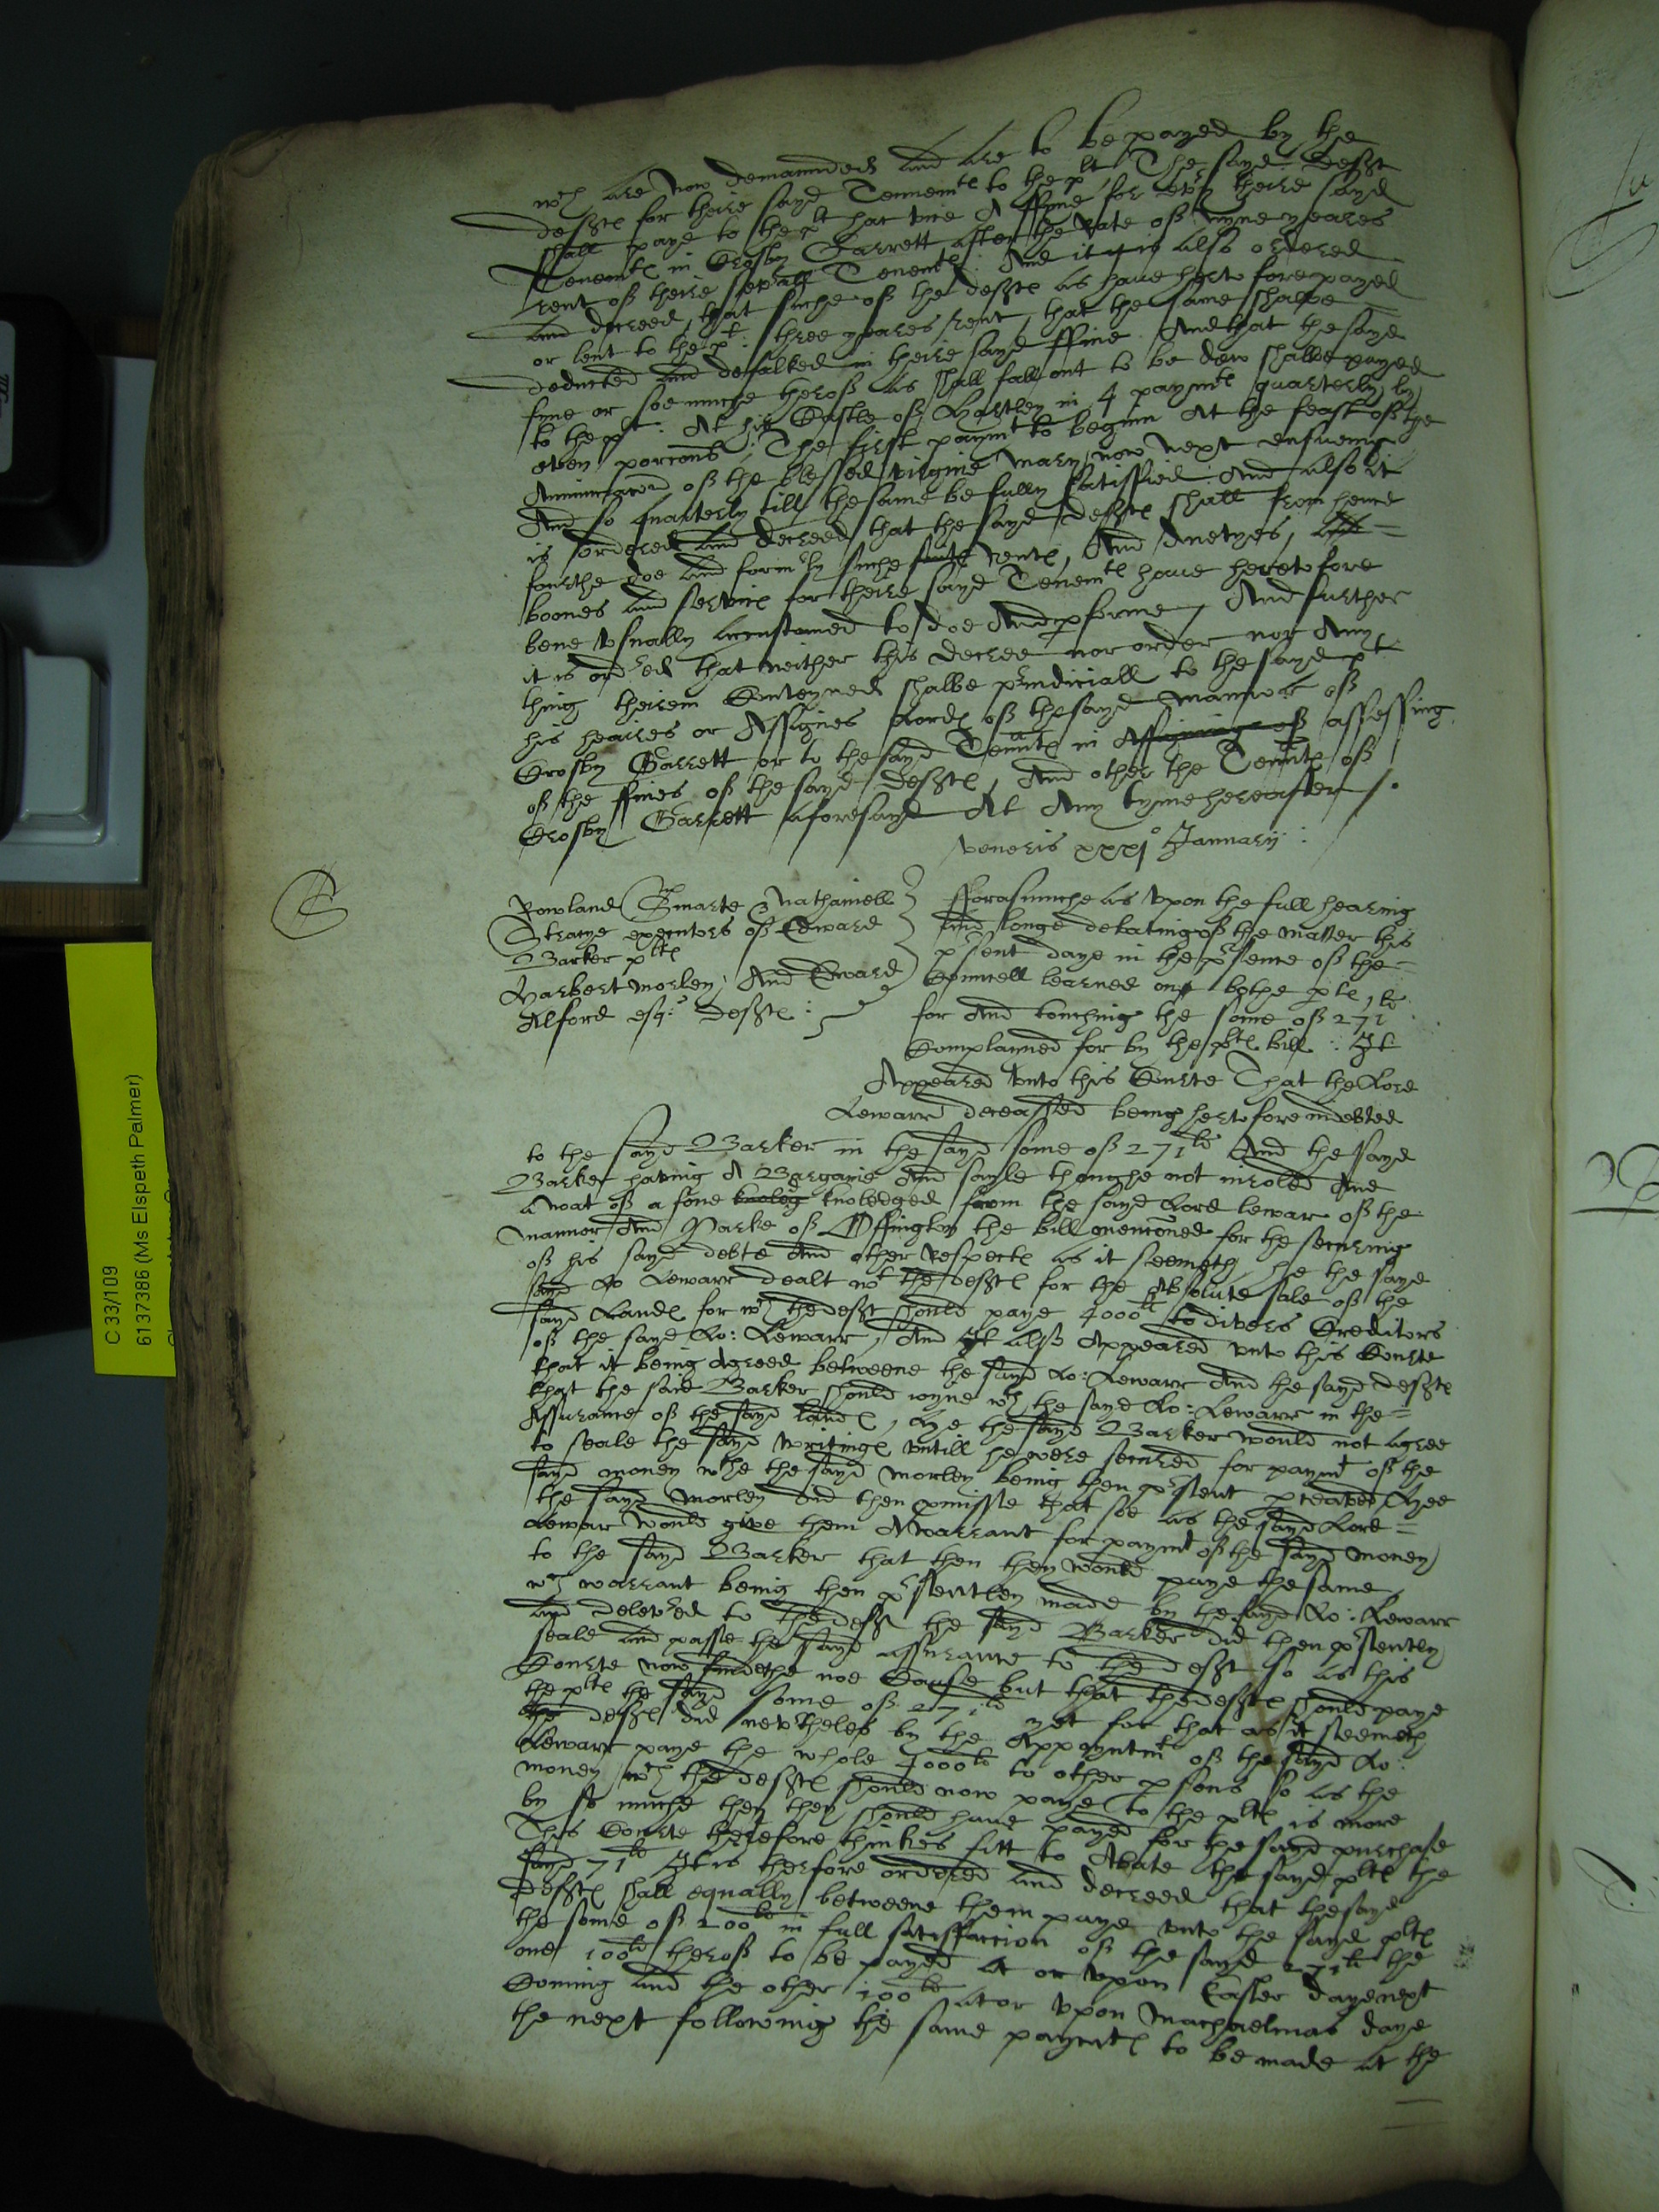 wch are now demaunded and are to be payed by the
deftes for theire sayd Tenemtes to the plt, The sayd defts
shall paye to the plt hac vice A ffyne for every theire sayd
Tenemtes in Crosby Garrett after the rate of nyne yeares
rent of theire severall Tenemtes: And it is also ordered
and decreed, that suche of the deftes as have hertofore payed
or lent to the plt: three yeares rent, that the same shalbe
deducted and defalked in theire sayd ffine And that the sayd
fyne or soe muche therof as shall fall out to be dew shalbe payed
to the plt: At his Castle of Hartley in 4 paymtes quarterly, by
even porcons, The first paymt to beginn At the feast of the
Annunciacon of the blessed virgine Mary, now next ensueing
And so quarterly till the same be fully satisfied: And also it
is ordered and decreed that the sayd deftes shall from hence
fourthe doe and forme by suche suite rentes, And dwetyes,
boones and services for theire sayd Tenemtes have heretofore
bene usually accustomed to doe And performe, And further
it is ordred that neither this decree nor order nor Any
thing theirein Conteyned shalbe prejudiciall to the sayd plt
his heaires or Assignes Lordes of the sayd mannor of
Crosby Garrett or to the sayd Tenntes in Assigninge of assessing
of the ffines of the sayd deftes, And other the Tenntes of
Crosby Garrett aforesayd At Any tyme hereafter /.
veneris xxxjo January:
Rowland Smarte Nathaniell
Straye executors of Edward
Barker pltes
Harbert Morley, And Edward
Alford esqr: deftes:
fforasmuche as upon the full hearing
and longe debating of the matter this
present daye in the presence of the =
Councell learned on bothe ptes,
for And touching the some of 271li
Complained for by the pltes bill: It
Appeared unto this Courte That the Lord
Lewarr deceassed being hertofore indebted
to the sayd Barker in the sayd some of 271li And the sayd
Barker having A Bargaine And sayle thoughe not inroled And
a not of a fine knoleg knoledged from the sayd Lord lewar of the
mannor And Parke of Offington the bill mencioned for the securing
of his sayd debte And other respectes as it seemeth, he the sayd
sayd Lo Lewarr dealt wt the deftes for the Absolute sale of the
sayd Landes for wch the deft should paye 4000li to divers Creditors
of the sayd Lo: Lewarr, And It also Appeared unto this Courte
that it being Agreed betweene the sayd Lo: Lewarr And the sayd deftes
that the said Barker should ioyne wth the sayd Lo: Lewarr in the =
Assurance of the sayd landes, Hye the sayd Barker would not agree
to seale the sayd writinges untill he were secured for paymt of the
sayd money wche the sayd Morley being then present
the sayd Morley did then promisse that soe as the sayd Lord =
Lewar would give them A Warrant for paymt of the sayd money
to the sayd Barker that then they would paye the same,
wch warrant being then presentley made by the sayd Lo: Lewarr
and delevred to the deft the sayd Barker did then presently
seale and passe the sayd assurance to the deft so as this
Courte now findethe noe Cause but that the deftes should paye
the pltes the sayd some of 271li yet for that as it seemeth
the deftes did neverthelesse by the Appoyntmt of the sayd Lo:
Lewarr paye the whole 4000li to other persons so as the
money wch the deftes should now paye to the pltes is more
by so muche then they should have payed for the sayd purchase
This Courte therefore thinkes fitt to Abate the sayd pltes the
sayd 71li It is therfore ordered and decreed that the sayd
deftes shall equally betweene them paye unto the sayd pltes
the some of 200li in full satisffaccion of the sayd 271li the
one 100li therof to be payed at or upon Easter daye next
Coming and the other 100li at or upon Machaelmas daye
the next following the same paymtes to be made at the
C 333/109
6137386 (Ms Elspeth Palmer)